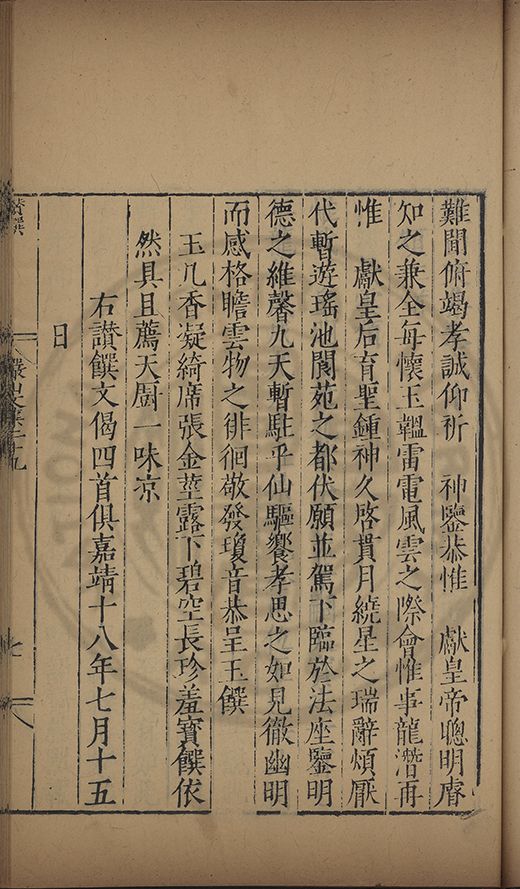 難聞俯竭孝誠仰祈　神鑒恭惟　獻皇帝聰明睿
知之兼全每懷玉韞雷電風雲之際會惟事龍潛再
惟　獻皇后育聖鍾神久啓貫月繞星之瑞辭煩厭
代暫遊瑤池閬苑之都伏願並駕下臨於法座鑒明
德之維馨九天暫駐乎仙驅饗孝思之如見徹幽明
而感格瞻雲物之徘徊敬發瓊音恭呈玉饌
玉几香凝綺席張金莖露下碧空長珍羞寶饌依
然具且薦天厨一味凉
右讃饌文偈四首俱嘉靖十八年七月十五
日
七